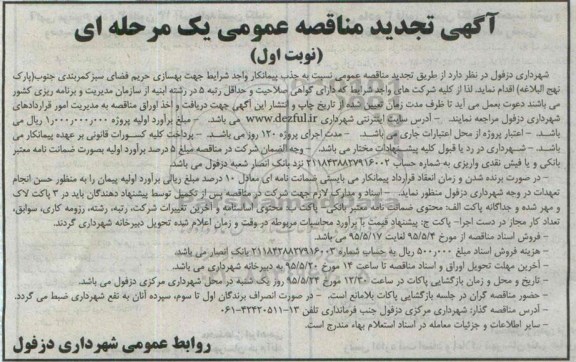 آگهی تجدید مناقصه عمومی یک مرحله ای
(نوبت اول)
شهرداری دزفول در نظر دارد از طریق تجدید مناقصه عمومی نسبت به جذب پیمانکار واجد شرایط جهت بهسازی حریم فضای سبز کمربندی جنوب(پارک
نهج البلاغه) اقدام نماید. لذا از کلیه شرکت های واجد شرایط که دارای گواهی صلاحیت و حداقل رتبه ۵ در رشته ابنیه از سازمان مدیریت و برنامه ریزی کشور
می باشند دعوت بعمل می آید تا ظرف مدت زمان از تاریخ چاپ و انتشار این آگهی جهت دریافت و اخذ اوراق مناقصه به مدیریت امور قراردادهای
شهرداری دزفول مراجعه نمایند. - آدرس سایت اینترنتی شهرداری www.dezful.ir می باشد. - مبلغ برآورد اولیه پروژه ۱/۰۰۰/۰۰۰/۰۰۰ ریال می
باشد. - اعتبار پروژه از محل اعتبارات جاری می باشد. - مدت اجرای پروژه ۱۲۰ روز می باشد. - پرداخت کلیه کسورات قانونی بر عهده پیمانکار می
باشد. - شهرداری در رد یا قبول کلیه پیشنهادات مختار می باشد. - وجه الضمان شرکت در مناقصه مبلغ ۵ درصد برآورد اولیه بصورت ضمانت نامه معتبر
بانکی و یا فیش نقدی واریزی به شماره حساب ۲۱۱۸۴۳۸۸۳۷۹۱۶۰۰۲ نزد بانک انصار شعبه دزفول می باشد.
- در صورت برنده شدن و زمان انعقاد قرارداد پیمانکار می بایستی ضمانت نامه ای معادل ۱۰ درصد مبلغ ریالی برآورد اولیه پیمان را به منظور حسن انجام
تعهدات در وجه شهرداری دزفول منظور نماید. - اسناد و مدارک لازم جهت شرکت در مناقصه پس از تکمیل توسط پیشنهاد دهندگان باید در ۳ پاکت لاک
و مهر شده و جداگانه پاکت الف: محتوی پاکت ب: محتوی اساسنامه و آخرین تغییرات شرکت، رتبه، رشته، رزومه کاری، سوابق،
تعداد کار مجاز در دست اجرا- پاکت ج: پیشنهاد قیمت با برآورد محاسبات مربوطه در وقت و زمان اعلام شده تحویل دبیرخانه شهرداری گردند.
- فروش اسناد مناقصه از مورخ ۹۵/۵/۴ لغایت ۹۵/۵/۱۷ می باشد.
- هزینه فروش اسناد مبلغ ۵۰۰/۰۰۰ ریال به حساب شماره ۲۱۱۸۴۳۸۸۳۷۹۱۶۰۰۳ بانک انصار می باشد.
- آخرین مهلت تحویل اوراق و اسناد مناقصه تا ساعت ۱۴ مورخ ۹۵/۵/۲۰ به دبیرخانه شهرداری می باشد.
- تاریخ و محل و زمان بازگشایی پاکات در ساعت ۱۲/۳۰ مورخ ۹۵/۵/۲۴ روز یک شنبه در محل شهرداری مرکزی دزفول می باشد.
- حضور مناقصه گران در جلسه بازگشایی پاکات بلامانع است. - در صورت انصراف برندگان اول تا سوم، سپرده آنان به نفع شهرداری ضبط می گردد.
- آدرس مناقصه گذار: شهرداری مرکزی دزفول جنب فرمانداری تلفن ۱۳-۴۲۴۲۰۵۱۱-۰۶۱
- سایر اطلاعات و جزئیات معامله در اسناد استعلام بهاء مندرج است.
روابط عمومی شهرداری دزفول